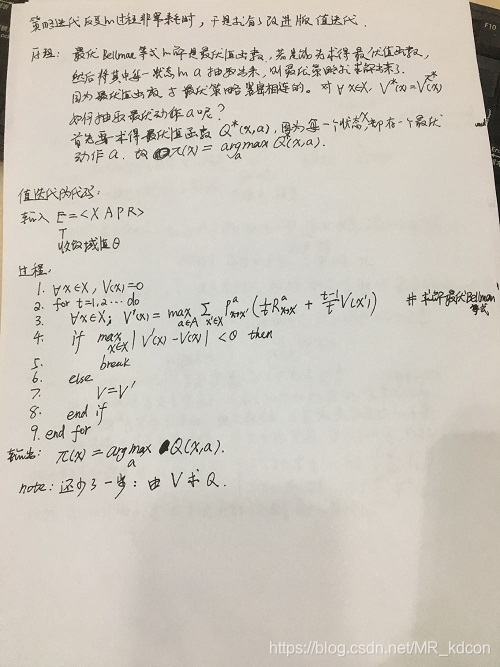 策略迭代反复的过程非常耗时，于是就有了改进版值迭代.
原理： 最优Bellman等式的解是最优值函数，若是能先求得最优值函数，
然后将其中每一状态的a抽取出来，则最优策略就求解出来了.
因为最优值函数与最优策略紧密相连的. 对∀x∈X, V*(x)=V^{π*}(x)
如何抽取最优动作a呢？
首先要求得最优值函数 Q*(x,a), 因为每一个状态x都存一个最优
动作a. 故 π(x) = argmax_a Q*(x,a).
值迭代伪代码：
输入 E=<X A P R>
T
收敛阈值θ
过程：
1. ∀x∈X, V(x)=0
2. for t=1,2... do
3. ∀x∈X; V'(x) = max_{a∈A} Σ_{x'∈X} P^a_{x→x'} (1/t R^a_{x→x'} + t-1/t V(x')) # 求解最优Bellman等式
4. if max_{x∈X} |V'(x)-V(x)| < θ then
5. break
6. else
7. V=V'
8. end if
9. end for
输出： π(x) = argmax_a Q(x,a).
note: 还少了一步：由 V 求 Q.
https://blog.csdn.net/MR_kdcon